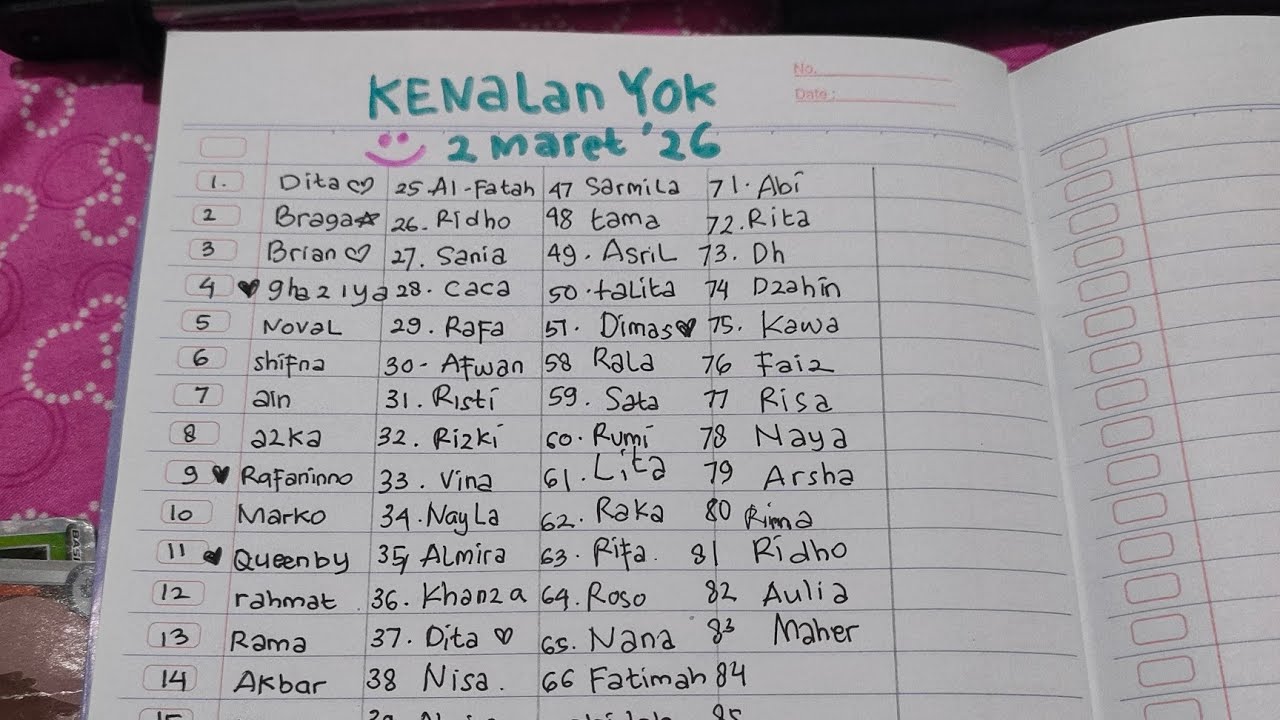 No.
Date:
KENALAN YOK
2 maret '26
1. Dita 25. Al-Fatah 47 Sarmila 71. Abi
2 Braga 26. Ridho 48 tama 72. Rita
3 Brian 27. Sania 49. Asril 73. Dh
4 ghaziya 28. caca 50. talita 74 Dzahin
5 Noval 29. Rafa 57. Dimas 75. Kawa
6 shifna 30- Afwan 58 Rala 76 Faiz
7 ain 31. Risti 59. Sata 77 Risa
8 azka 32. Rizki 60. Rumi 78 Naya
9 Rafaninno 33. Vina 61. Lita 79 Arsha
10 Marko 34. Nayla 62. Raka 80 Rima
11 Queenby 35, Almira 63. Rifa. 81 Ridho
12 rahmat 36. Khanza 64. Roso 82 Aulia
13 Rama 37. Dita 65. Nana 83 Maher
14 Akbar 38 Nisa. 66 Fatimah 84
15 39 85